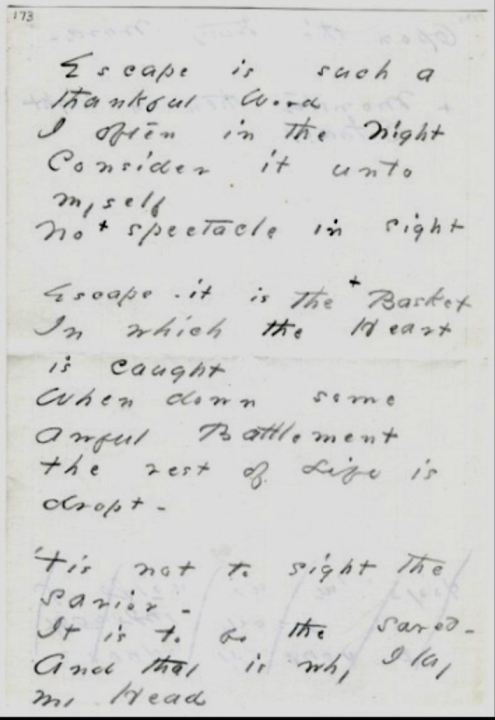 173
Escape is such a
thankful Word
I often in the Night
Consider it unto
myself
No + spectacle in sight
Escape - it is the + Basket
In which the Heart
is caught
When down some
awful Battlement
the rest of Life is
dropt -
'Tis not to sight the
savior -
It is to be the saved -
And that is why I lay
my Head